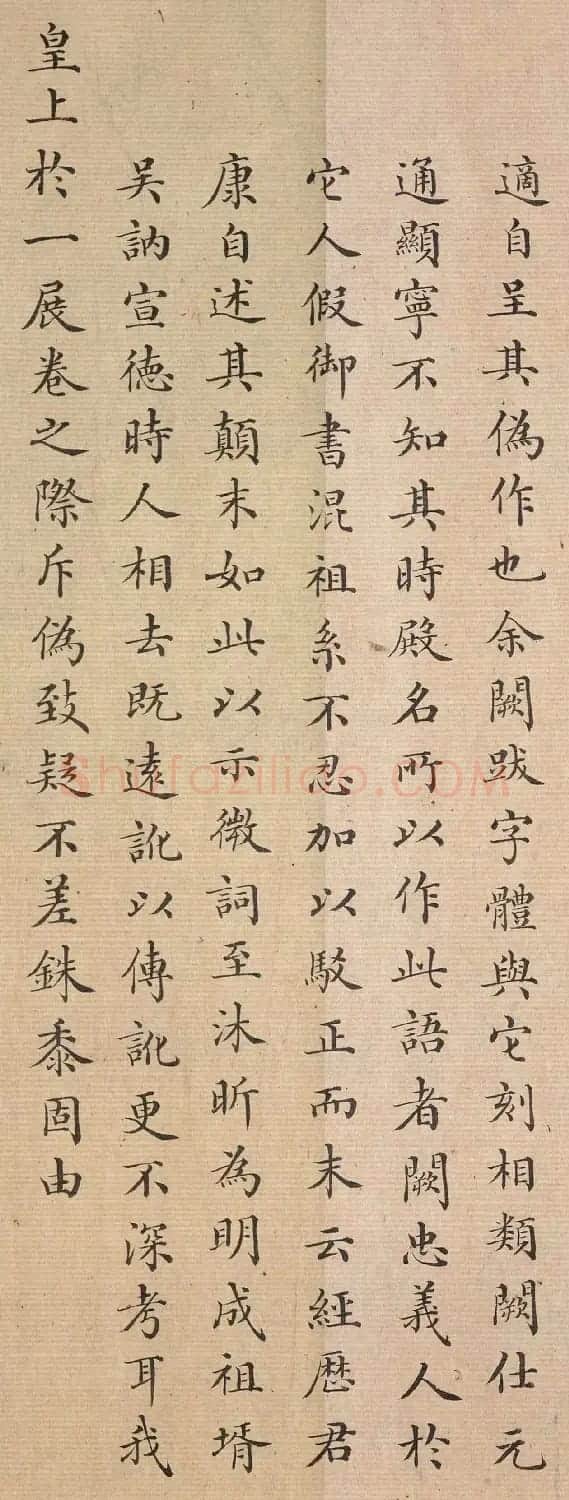 適自呈其偽作也余闕跋字體與它刻相類闕仕元
通顯寧不知其時殿名所以作此語者闕忠義人於
它人假御書混祖系不忍加以駁正而末云經歷君
康自述其顛末如此以示微詞至沐昕為明成祖壻
吴訥宣徳時人相去既遠訛以傳訛更不深考耳我
皇上於一展卷之際斥偽致疑不差銖黍固由
shufaziliao.COM